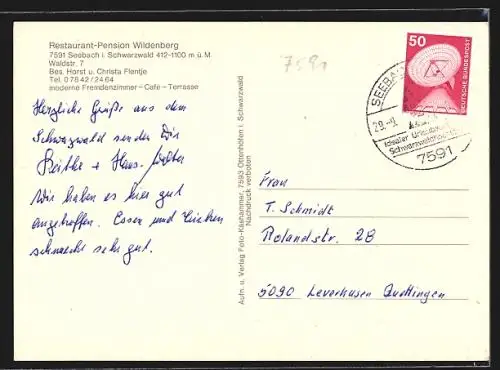 Restaurant-Pension Wildenberg
7591 Seebach i. Schwarzwald 412-1100 m ü. M.
Waldstr. 7
Bes. Horst u. Christa Flentje
Tel. 07842/2464
moderne Fremdenzimmer – Cafe – Terrasse
7591
50
DEUTSCHE BUNDESPOST
SEEBA
Idealer
Schwarzwald
7591
Herzliche Grüße aus dem
Schwarzwald senden Dir
+ Hans-Walter
Wir haben es hier gut
angetroffen. Essen und
schmeckt sehr gut.
Aufn. u. Verlag Foto-Käshammer, 7593 Ottenhöfen i. Schwarzwald
Nachdruck verboten
Frau
T. Schmidt
Rolandstr. 28
5090 Leverkusen